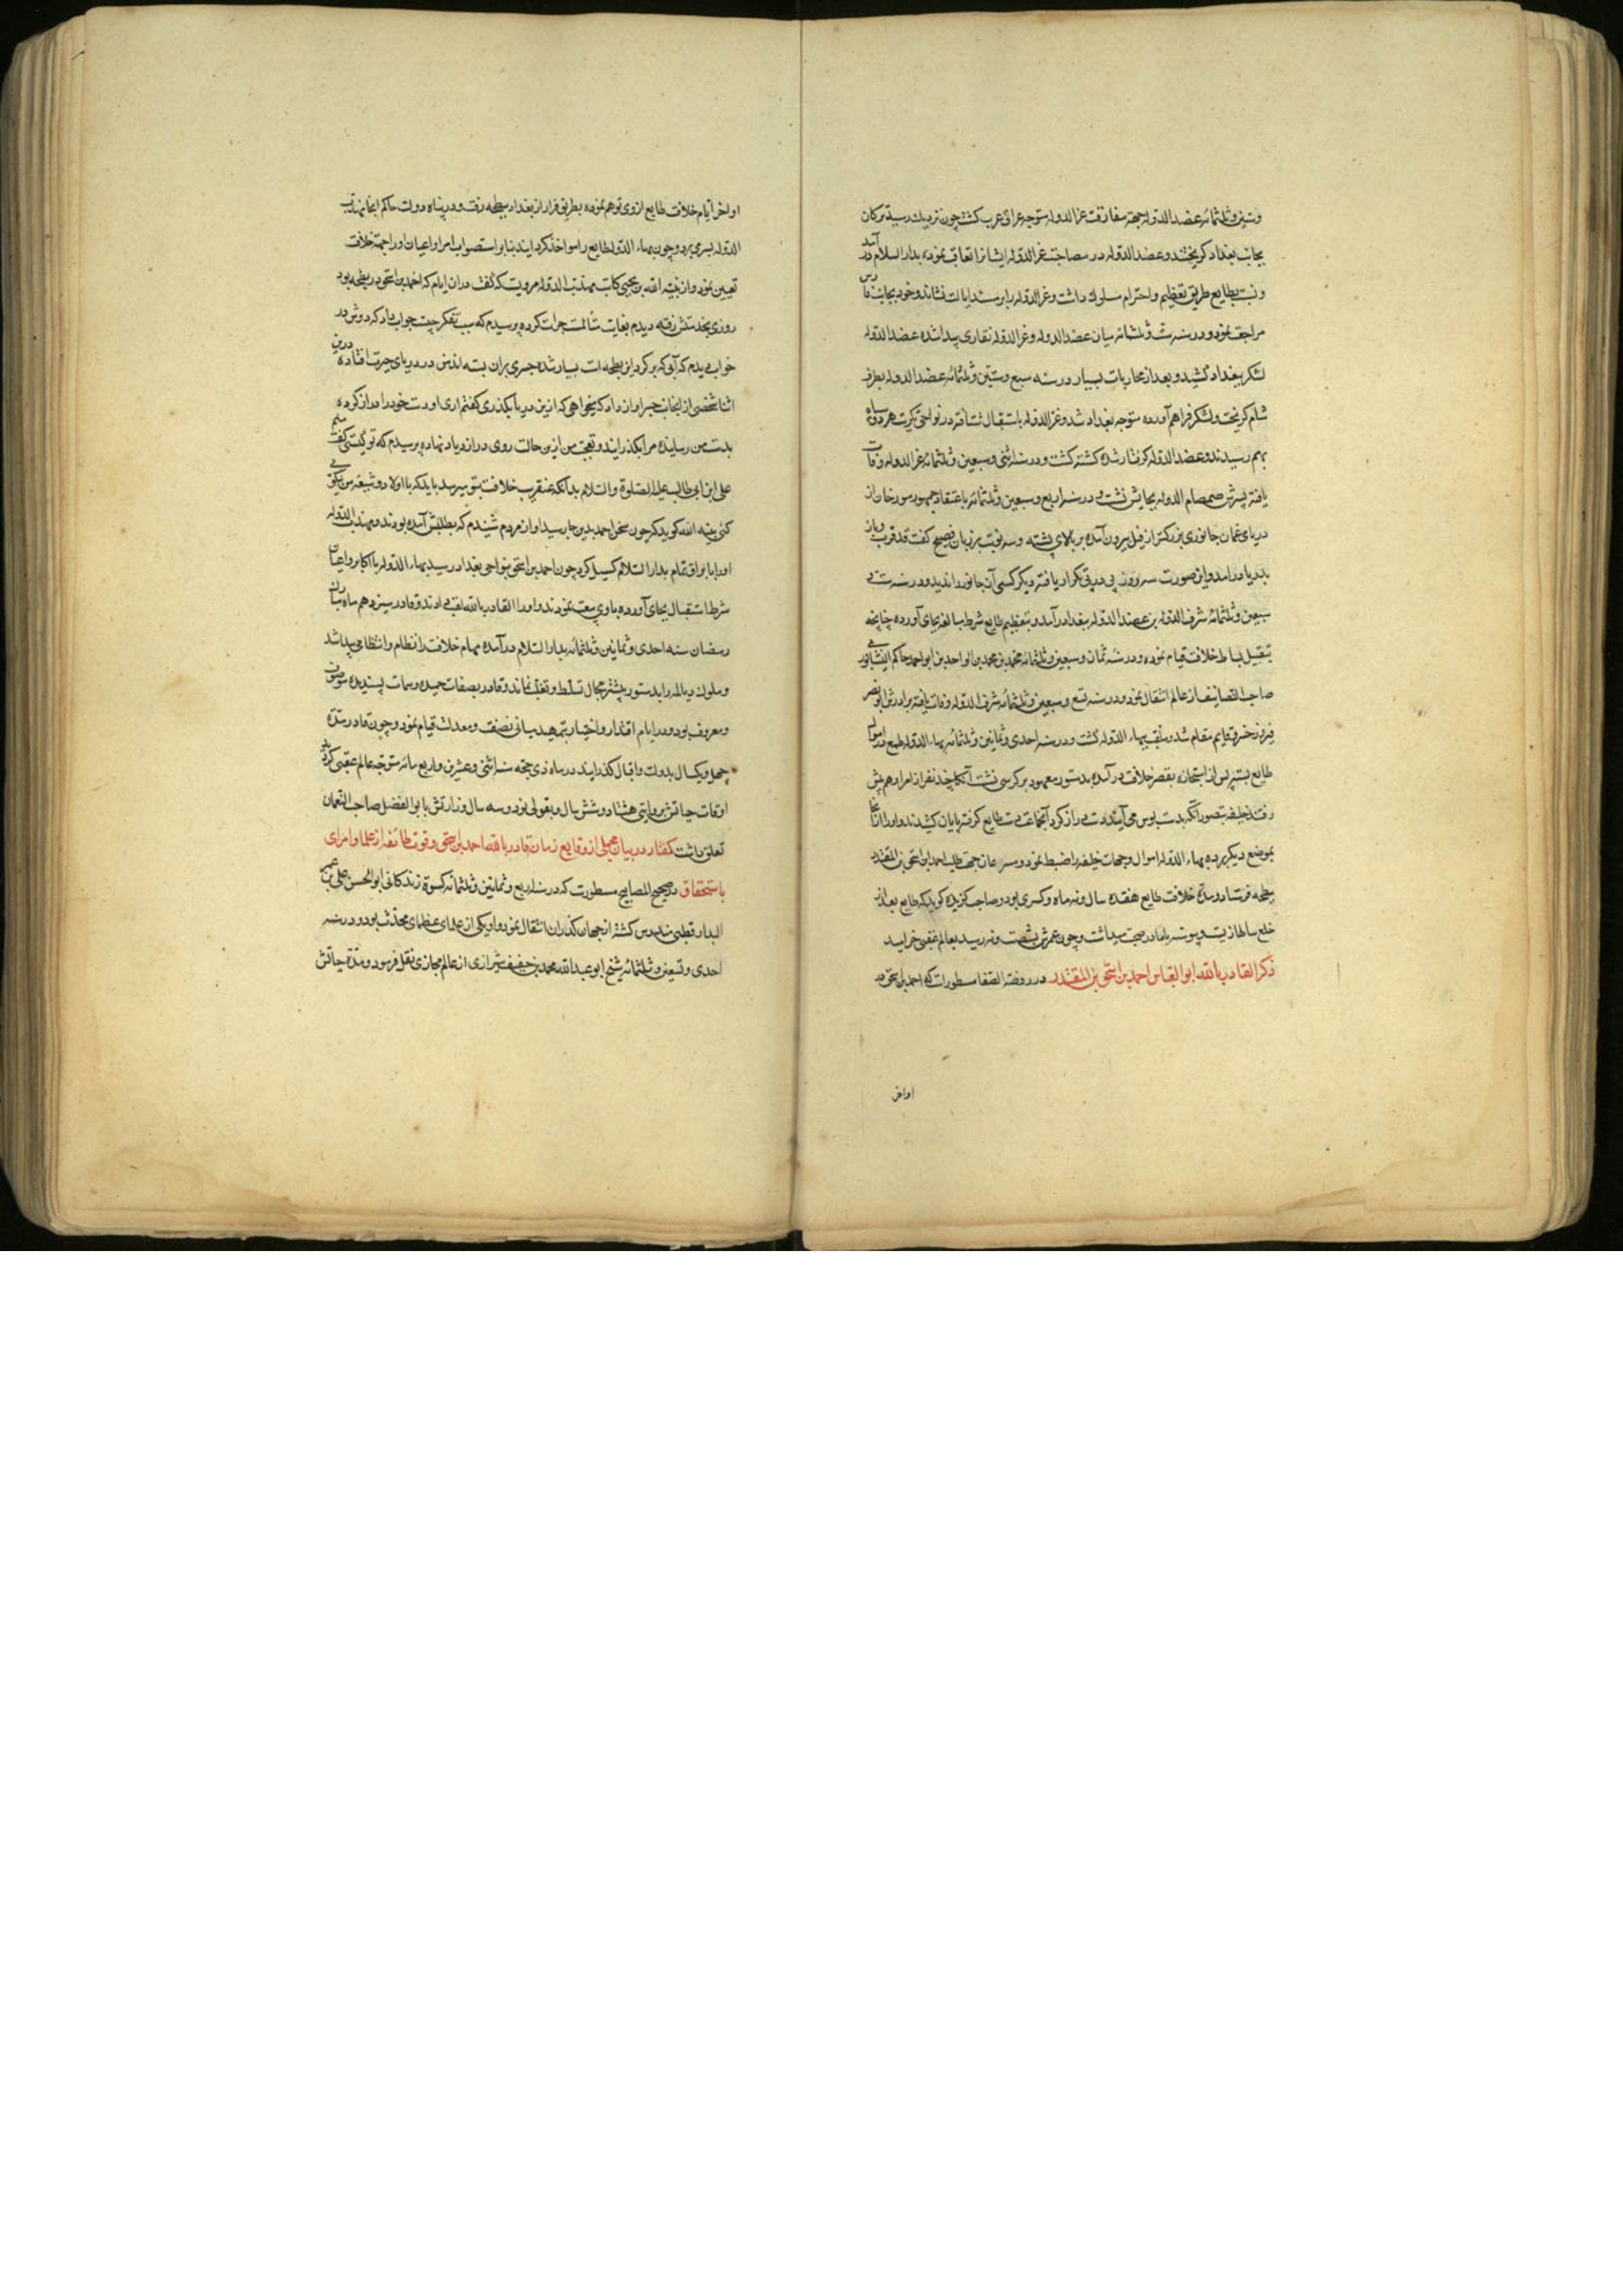 وستین وثلثمائه عضد الدوله بجهة مفارقت عز الدوله متوجه عراق عرب کشت چون نزدیک رسید ترکان
بجانب بغداد کریختند و عضد الدوله در مصاحبت عز الدوله ایشانرا تعاقب نموده بدار السلام در آمد
و نسبت بطایع طریق تعظیم و احترام مسلوک داشت و عز الدوله را بر مسند ایالت نشاند و خود بجانب فارس
مراجعت نمود و در سنه ست و ثلثمائه میان عضد الدوله و عز الدوله نقاری پیدا شده عضد الدوله
لشکر ببغداد کشید و بعد از محاربات بسیار در سنه سبع و ستین و ثلثمائه عضد الدوله بطرف
شام کریخت و لشکر فراهم آورده متوجه بغداد شد و عز الدوله باستقبال شتافته در نواحی تکریت هر دو سپاه
بهم رسیدند و عضد الدوله کرفتار شده کشته کشت و در سنه اثنی و سبعین و ثلثمائه عز الدوله وفات
یافته پسرش صمصام الدوله بجایش نشست و در سنه اربع و سبعین و ثلثمائه باعتقاد جمهور مورخان از
دریای عمان جانوری بزرکتر از فیل بیرون آمده بر بالای پشته و سه نوبت بر زبان فصیح کفت قد قرب و باز
بدریا درامد و این صورت سه روز پی در پی تکرار یافته دیکر کسی آن جانور را ندید و در سنه ست و
سبعین و ثلثمائه شرف الدوله بن عضد الدوله ببغداد در آمد و بتعظیم طایع شرط مبالغه بجای آورده چنانچه
بتقبیل بساط خلافت قیام نموده و در سنه ثمان و سبعین و ثلثمائه محمد بن محمد بن ابو احمد حاکم النیشابوری
صاحب التصانیف از عالم انتقال نمود و در سنه تسع و سبعین و ثلثمائه شرف الدوله وفات یافته برادرش ابو نصر
فیروز خسرو قایم مقام شد و ملقب ببهاء الدوله کشت و در سنه احدی و ثمانین و ثلثمائه بهاء الدوله طمع در اموال
طایع بسته پس از استجازه بقصر خلافت در آمده بدستور معهود بر کرسی نشست آنکاه چند نفر از امرا و هم پیش
رفتند خلیفه بتصور آنکه بدست بوس می آیند دست دراز کرد آنجماعت دست طایع کرفته بپایان کشیدند و او را از آنجا
بموضع دیکر برده بهاء الدوله اموال و جهات خلیفه را ضبط نمود و مسرعان جهت طلب احمد بن اسحق بن المقتدر
ببطیحه فرستاد و مدة خلافت طایع هفده سال و نه ماه و کسری بود و صاحب کزیده کوید که طایع بعد از
خلع سالها زیست و پیوسته با قادر صحبت میداشت و چون عمرش بشصت و نه رسید بعالم عقبی خرامید
ذکر القادر بالله ابو العباس احمد بن اسحق بن المقتدر در روضة الصفا مسطور است که احمد بن اسحق در
اواخر
اواخر ایام خلافت طایع از وی توهم نموده بطریق فرار از بغداد ببطیحه رفت و در پناه دولت حاکم انجا مهذب
الدوله بسر می برد و چون بهاء الدوله طایع را مواخذ کردانید بنا بر استصواب امرا و اعیان او را جهة خلافت
تعیین نمود و از هبة الله بن عیسی کاتب مهذب الدوله مرویست که کفت در ان ایام که احمد بن اسحق در بطیحه بود
روزی بخدمتش رفته دیدم بغایت متألمست جرات کرده پرسیدم که سبب تفکر چیست جواب داد که دوش در
خواب دیدم که آبی که بر کرد این بطیحه است بسیار شده جسری بران بسته اند من در دریای حیرت افتاده درین
اثنا شخصی از انجانب جسر اواز داد که میخواهی که ازین دریا بکذری کفتم اری او دست خود را دراز کرده
بدست من رسانیده مرا بکذرانید و تعجب من ازین حالت روی در ازدیاد نهاده پرسیدم که تو کیستی کفت منم
علی ابن ابی طالب علیه الصلوة و السلام بدانکه عنقریب خلافت بتو میرسد باید که با اولاد و شیعه من نیکوئی
کنی هبة الله کوید که چون سخن احمد بدین جا رسید اواز مردم شنیدم که بطلبش آمده بودند و مهذب الدوله
او را با یراق تمام بدار السلام کسیل کرد چون احمد بن اسحق بنواحی بغداد رسید بهاء الدوله با اکابر و اعیان
شرط استقبال بجای آورده با وی بیعت نمودند و او را القادر بالله لقب دادند و قادر سیزدهم ماه مبارک
رمضان سنه احدی و ثمانین و ثلثمائه بدار السلام در آمده مهام خلافت را نظام و انتظامی پیدا شد
و ملوک دیالمه را بدستور پیشتر مجال تسلط و تغلب نماند و قادر بصفات حمیده و سمات پسندیده موصوف
و معروف بود و در ایام اقتدار و اختیار بتمهید مبانی نصفت و معدلت قیام نمود و چون قادر مدة
چهل و یکسال بدولت و اقبال کذرانید در ماه ذی حجه سنه اثنی و عشرین و اربع مائه متوجه عالم عقبی کردید
اوقات حیاتش بروایتی هشتاد و شش سال و بقولی نود و سه سال وزارتش بابو الفضل صاحب النعمان
تعلق داشت کفتار در بیان مجملی از وقایع زمان قادر بالله احمد بن اسحق و فوت طائفه از علما و امرای
باستحقاق در صحیح المصابیح مسطورست که در سنه اربع و ثمانین و ثلثمائه کسوة زندکانی ابو الحسن علی بن عمر
الدار قطنی مندرس کشته از جهان کذران انتقال نمود و او یکی از علمای عظمای محدث بود و در سنه
احدی و تسعین و ثلثمائه شیخ ابو عبد الله محمد بن خفیف شیرازی از عالم مجازی نقل فرمود و مدة حیاتش